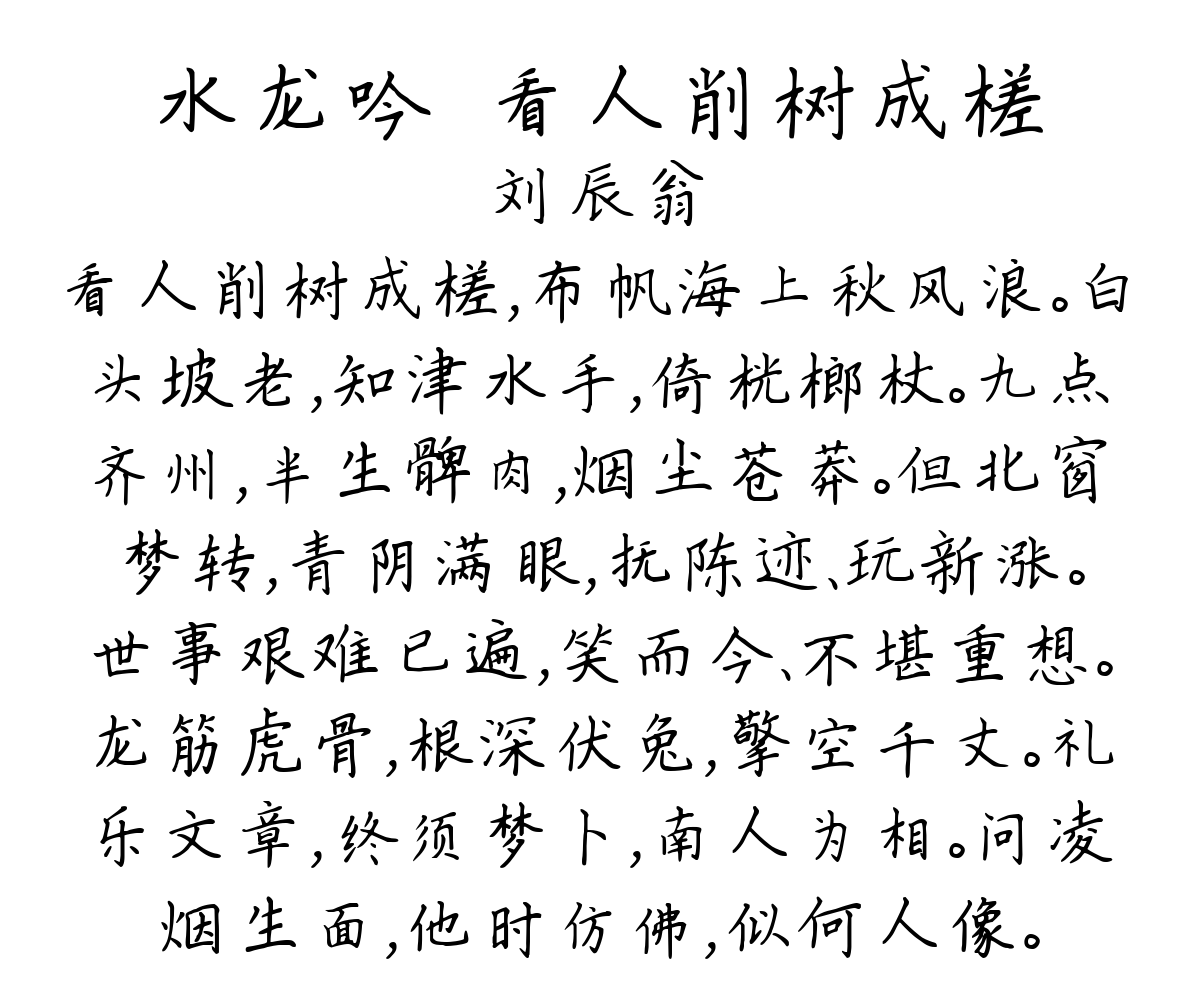 水龙吟 看人削树成槎
刘辰翁
看人削树成槎,布帆海上秋风浪。白
头坡老,知津水手,倚桄榔杖。九点
齐州,半生髀肉,烟尘苍莽。但北窗
梦转,青阴满眼,抚陈迹、玩新涨。
世事艰难已遍,笑而今、不堪重想。
龙筋虎骨,根深伏兔,擎空千丈。礼
乐文章,终须梦卜,南人为相。问凌
烟生面,他时仿佛,似何人像。